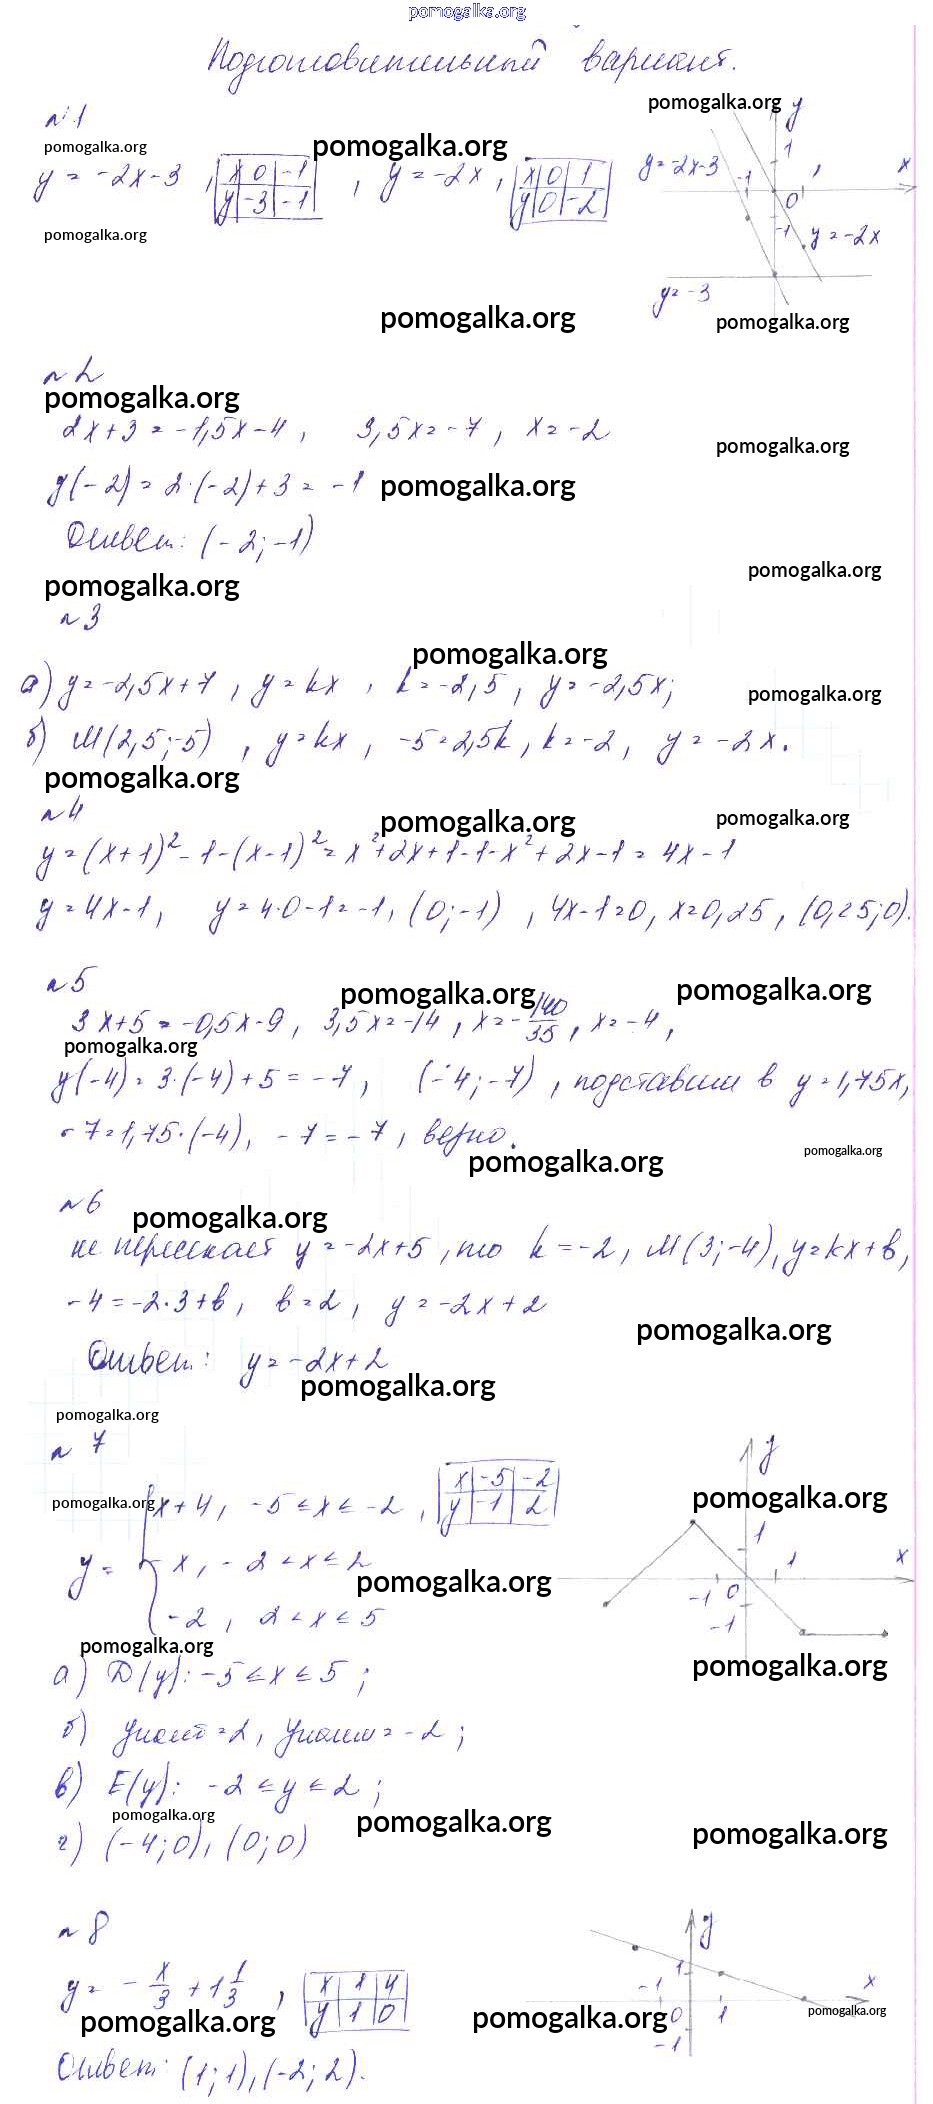 pomogalka.org
Подготовительный вариант.
№1
pomogalka.org
pomogalka.org pomogalka.org
y = -2x-3, x 0 -1, y = -2x, x 0 1
y -3 -1 y 0 -2
y
1
x
y=-2x-3
-1
0
-1
y=-2x
y=-3
pomogalka.org
pomogalka.org pomogalka.org
№2
pomogalka.org
2x+3 = -1,5x-4, 3,5x=-7, x=-2
pomogalka.org
y(-2) = 2·(-2)+3 = -1
pomogalka.org
Ответ: (-2;-1)
pomogalka.org
pomogalka.org
№3
pomogalka.org
а) y=-2,5x+7, y=kx, k=-2,5, y=-2,5x;
pomogalka.org
б) M(2,5;-5), y=kx, -5=2,5k, k=-2, y=-2x.
pomogalka.org
№4
pomogalka.org pomogalka.org
y=(x+1)²-1-(x-1)²=x²+2x+1-1-x²+2x-1=4x-1
y=4x-1, y=4·0-1=-1, (0;-1), 4x-1=0, x=0,25, (0,25;0).
№5
pomogalka.org pomogalka.org
3x+5=-0,5x-9, 3,5x=-14, x=-140/35, x=-4,
pomogalka.org
y(-4)=3·(-4)+5=-7, (-4;-7), подставим в y=1,75x,
-7=1,75·(-4), -7=-7, верно.
pomogalka.org pomogalka.org
№6
pomogalka.org
не пересекает y=-2x+5, то k=-2, M(3;-4), y=kx+b,
-4=-2·3+b, b=2, y=-2x+2
pomogalka.org
Ответ: y=-2x+2
pomogalka.org
pomogalka.org
№7
pomogalka.org
x+4, -5≤x≤-2, x -5 -2
y -1 2
y= -x, -2<x≤2
pomogalka.org
-2, 2<x≤5
y
1
pomogalka.org
1
x
-1 0
-1
pomogalka.org
pomogalka.org
а) D(y): -5≤x≤5;
б) yнаиб=2, yнаим=-2;
в) E(y): -2≤y≤2;
pomogalka.org
pomogalka.org pomogalka.org
г) (-4;0), (0;0)
№8
y= -x/3 +1 1/3, x 1 4
y 1 0
pomogalka.org
y
1
-1
x
0 1
-1
pomogalka.org pomogalka.org
Ответ: (1;1), (-2;2).